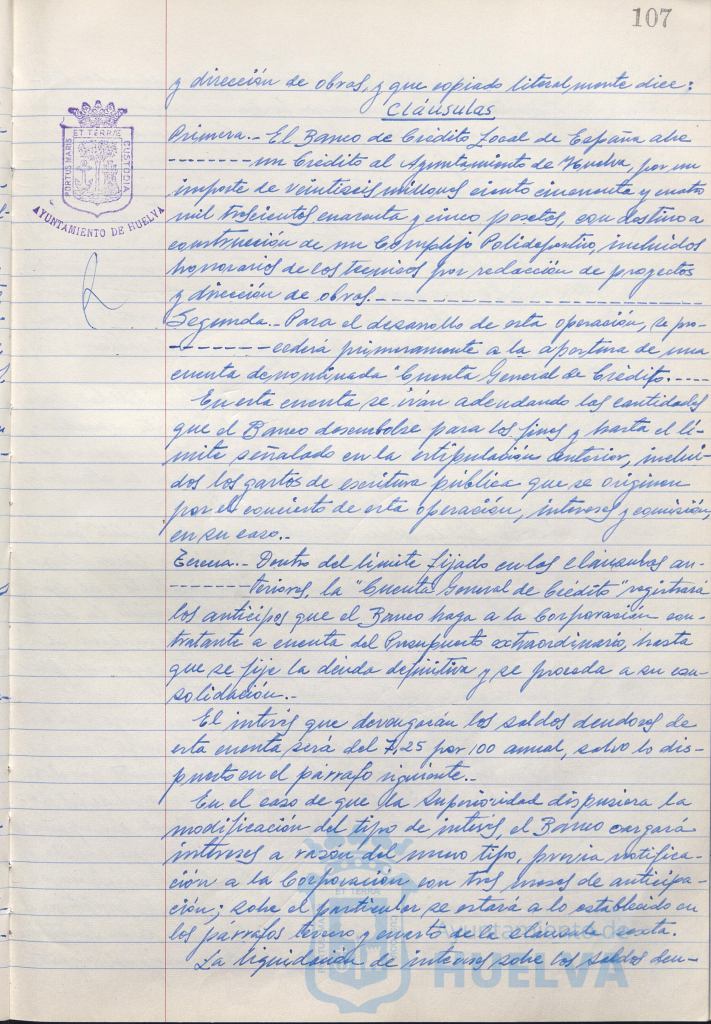 107
y dirección de obras, y que copiado literalmente dice:
Cláusulas
Primera.- El Banco de Crédito Local de España abre
-------- un Crédito al Ayuntamiento de Huelva, por un
importe de veintiseis millones ciento cincuenta y cuatro
mil trescientos cuarenta y cinco pesetas, con destino a
construcción de un Complejo Polideportivo, incluidos
honorarios de los tecnicos por redacción de proyectos
y dirección de obras.--------------------
Segunda.- Para el desarrollo de esta operación, se pro-
-------- cederá primeramente a la apertura de una
cuenta denominada "Cuenta General de Crédito".----
En esta cuenta se irán adeudando las cantidades
que el Banco desembolse para los fines y hasta el lí-
mite señalado en la estipulación anterior, inclui-
dos los gastos de escritura pública que se originen
por el concierto de esta operación, intereses y comisión,
en su caso.-
Tercera.- Dentro del límite fijado en las cláusulas an-
-------- teriores, la "Cuenta General de Crédito" registrará
los anticipos que el Banco haga a la Corporación con-
tratante a cuenta del Presupuesto extraordinario, hasta
que se fije la deuda definitiva y se proceda a su con-
solidación.-
El interés que devengarán los saldos deudores de
esta cuenta será del 7,25 por 100 anual, salvo lo dis-
puesto en el párrafo siguiente.-
En el caso de que la Superioridad dispusiera la
modificación del tipo de interés, el Banco cargará
intereses a razon del nuevo tipo, previa notifica-
ción a la Corporación con tres meses de anticipa-
ción; sobre el particular se estará a lo establecido en
los párrafos tercero y cuarto de la cláusula sexta.
La liquidación de intereses sobre los saldos deu-
PORTUS MARIS ET TERRÆ CUSTODIA
AYUNTAMIENTO DE HUELVA
Ayuntamiento de
HUELVA